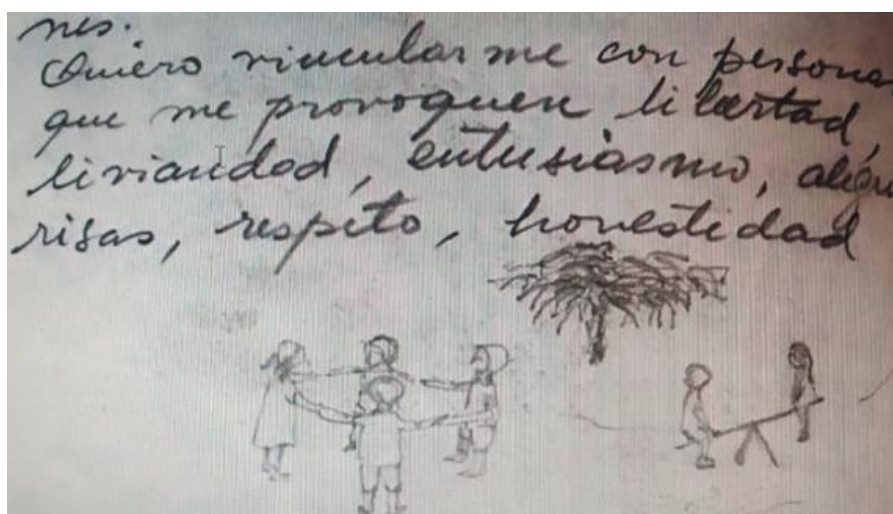 nes.
Quiero vincularme con persona
que me provoquen libertad,
liviandad, entusiasmo, alegr
risas, respeto, honestidad